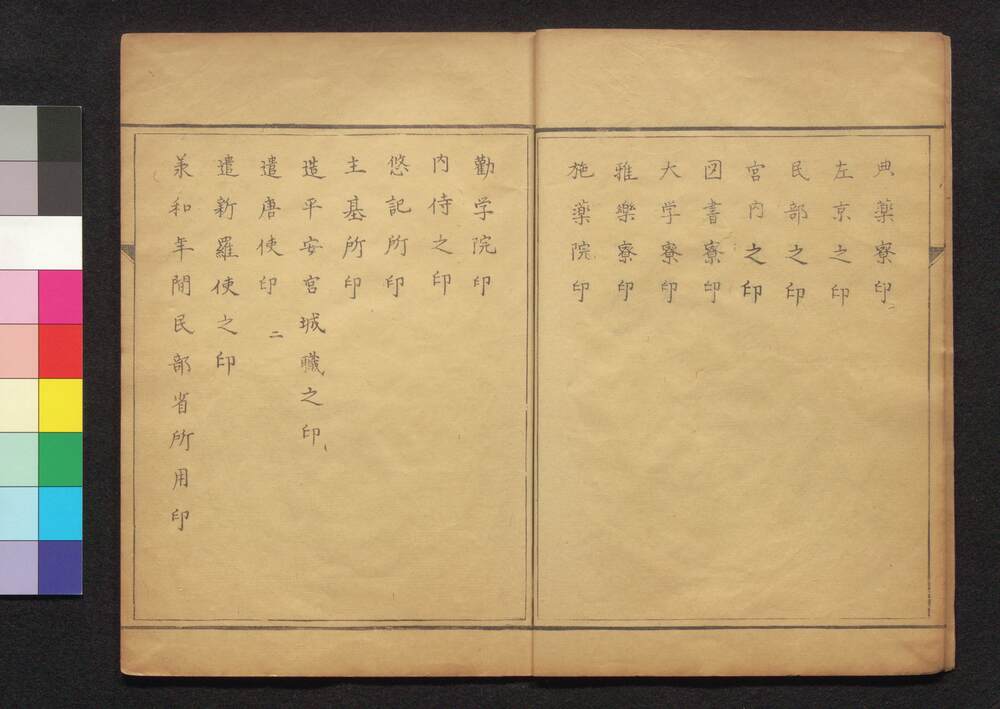 典薬寮印
左京之印
民部之印
宮内之印
図書寮印
大学寮印
雅楽寮印
施薬院印
勸学院印
内侍之印
悠記所印
主基所印
造平安宮城職之印
遣唐使印 二
遣新羅使之印
承和年間民部省所用印